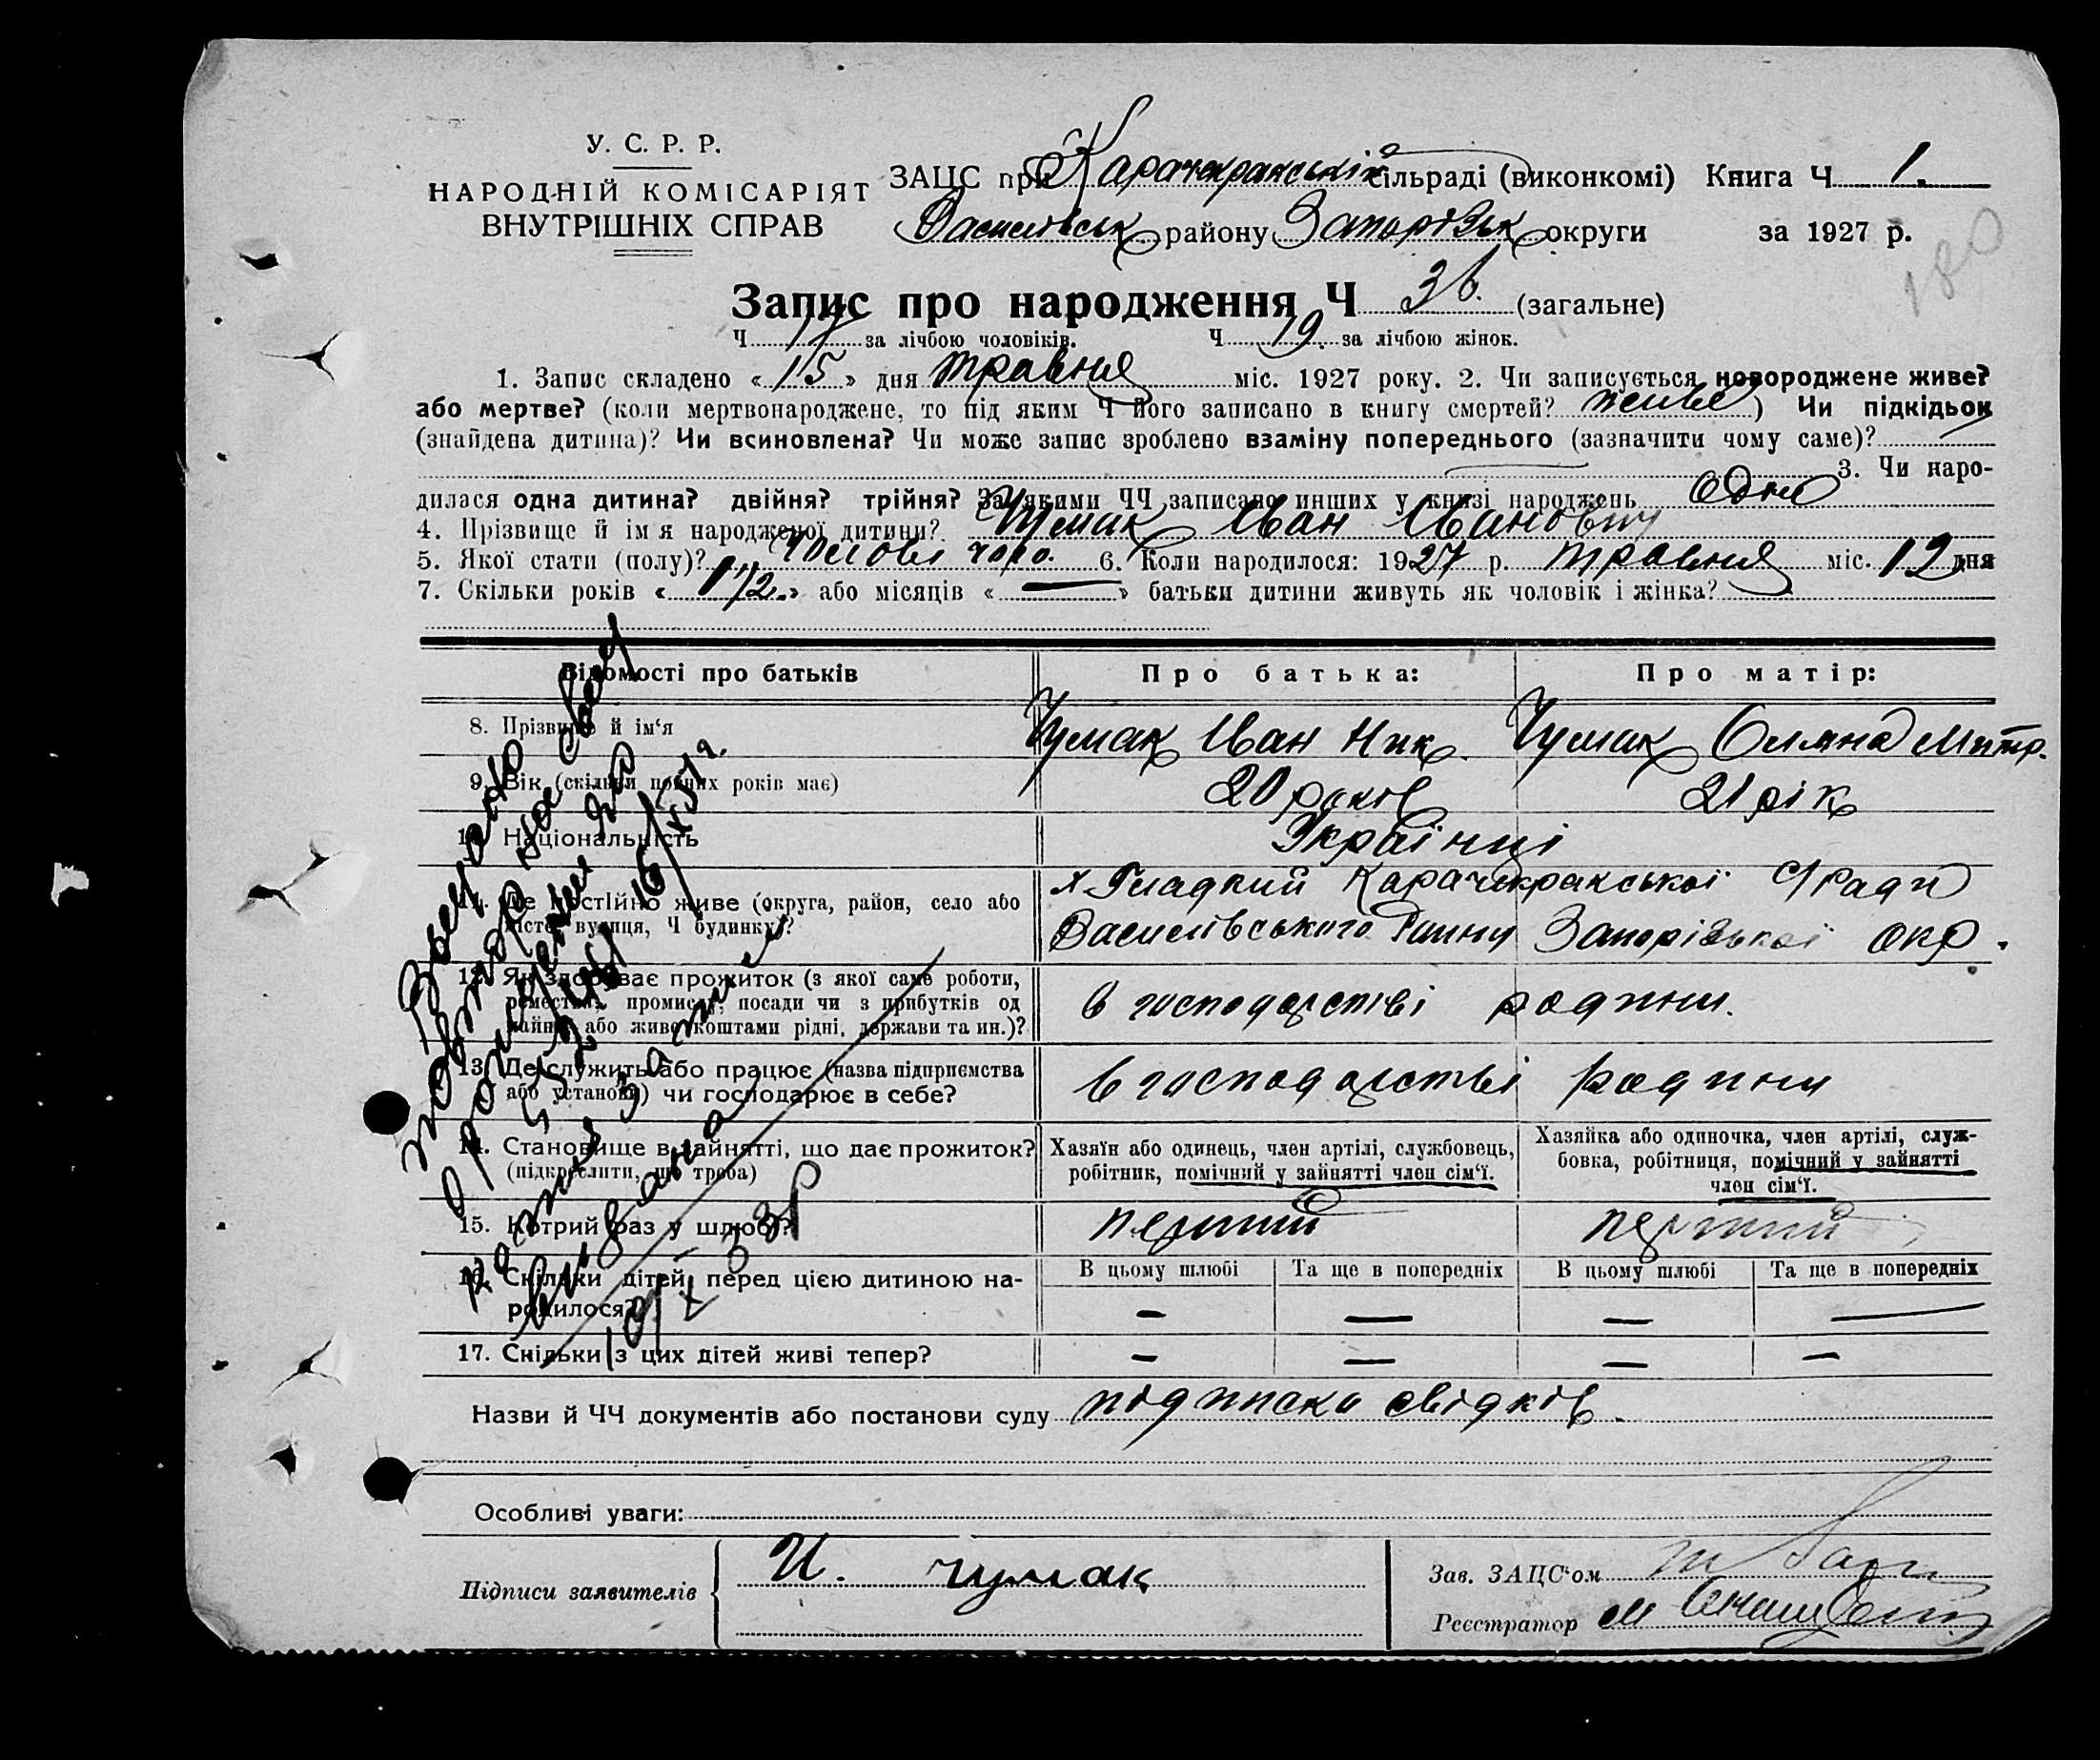 У. С. Р. Р.
НАРОДНІЙ КОМІСАРІЯТ
ВНУТРІШНІХ СПРАВ
ЗАЦС при Карачекракській сільраді (виконкомі) Книга Ч 1.
Василівськ району Запорізьк округи за 1927 р.
180
Запис про народження Ч 36. (загальне)
Ч 17 за лічбою чоловіків. Ч 19. за лічбою жінок.
1. Запис складено « 15 » дня травня міс. 1927 року. 2. Чи записується новороджене живе?
або мертве? (коли мертвонароджене, то під яким Ч його записано в книгу смертей? живе) Чи підкідьок
(знайдена дитина)? Чи всиновлена? Чи може запис зроблено взаміну попереднього (зазначити чому саме)?
3. Чи наро-
дилася одна дитина? двійня? трійня? За якими ЧЧ записано инших у книзі народжень одна
4. Прізвище й ім я народженої дитини? Чумак Іван Іванович
5. Якої стати (полу)? чолові чого. 6. Коли народилося: 1927 р. травня міс. 12 дня
7. Скільки років « 1 1/2 » або місяців « — » батьки дитини живуть як чоловік і жінка?
Відомості про батьків Про батька: Про матір:
8. Прізвище й ім'я Чумак Іван Ник. Чумак Оляна Митр.
9. Вік (скільки повних років має) 20 років 21 рік
10. Національність Українці
11. Де постійно живе (округа, район, село або х. Гладкий Карачекракської С/ради
місто, вулиця, Ч будинку)? Василівського Району Запорізької окр.
12. Як здобуває прожиток (з якої саме роботи,
ремества, промислу, посади чи з прибутків од в господарстві родини.
майна, або живе коштами рідні, держави та ин.)?
13. Де служить або працює (назва підприємства
або установи) чи господарює в себе? в господарстві родини
14. Становище в зайнятті, що дає прожиток? Хазаїн або одинець, член артілі, службовець, Хазяйка або одиночка, член артілі, служ-
(підкреслити, що треба) робітник, помічний у зайнятті член сім'ї. бовка, робітниця, помічний у зайнятті
член сім'ї.
15. Котрий раз у шлюбі? перший перший
16. Скільки дітей перед цією дитиною на- В цьому шлюбі Та ще в попередніх В цьому шлюбі Та ще в попередніх
родилося? — — — —
17. Скільки з цих дітей живі тепер? — — — —
Выдано
повтор на свид
о рождении
Назви й ЧЧ документів або постанови суду підписка свідків.
Особливі уваги:
Підписи заявителів И. чумак
Зав. ЗАЦС'ом
Реєстратор